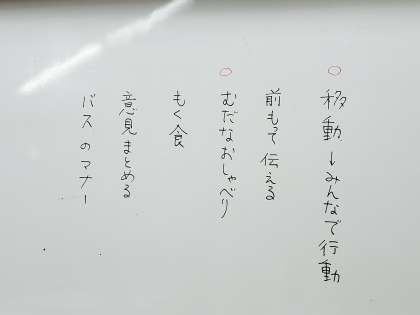 ○移動→みんなで行動
前もって伝える
○むだなおしゃべり
もく食
意見まとめる
バスのマナー